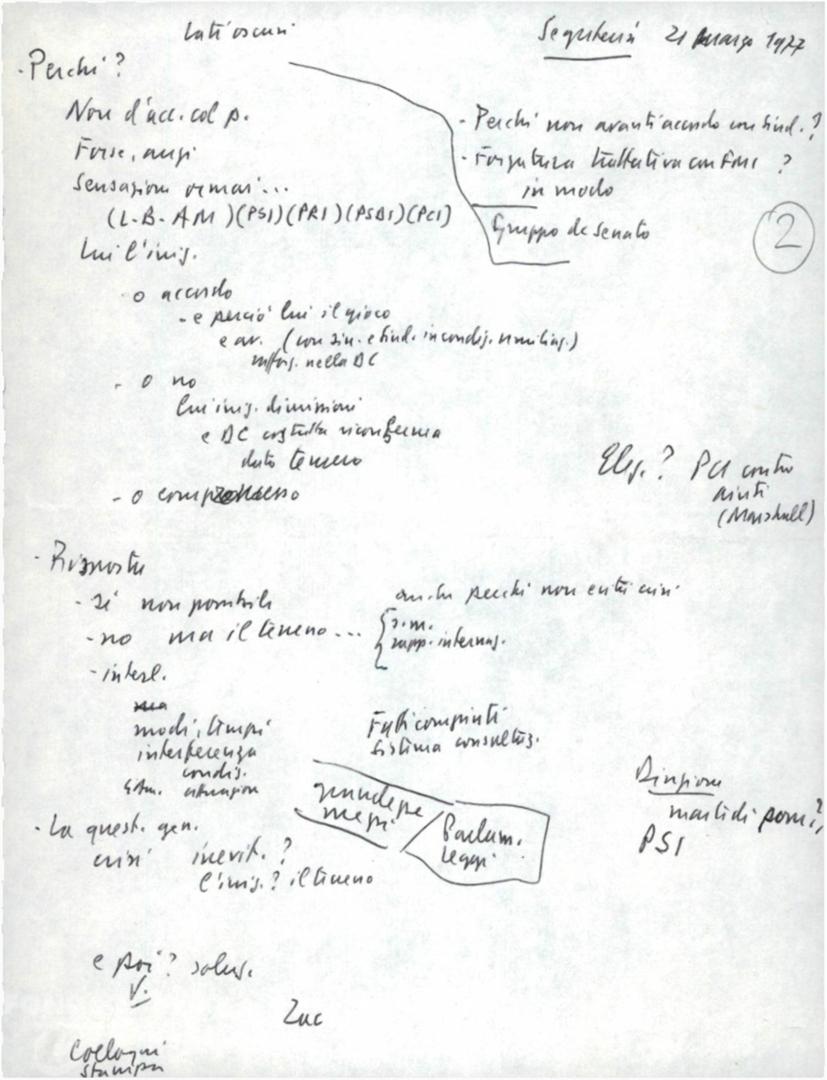 Lati oscuri
Segreteria 21 marzo 1977
- Perché?
Non d'acc. col p.
Forse, anzi
Sensazioni ormai...
(L-B-AM) (PSI) (PRI) (PSDI) (PCI)
Lui l'iniz.
- Perché non avanti accordo con sind.?
- Forzatura trattativa con FMI ?
in modo
Gruppo de Senato
2
o accordo
- e perciò lui il gioco
e av. (con sin. e sind. incondiz. umiliaz.)
raffors. nella DC
- o no
lui iniz. dimissioni
e DC costretta riconferma
dato terreno
- o compromesso
Elez.? PCI contro
aiuti
(Marshall)
- Risposta
- sì non possibile
- no ma il terreno...
anche perché non entri crisi
s.m.
rapp. internaz.
- interl.
modi, tempi
interferenza
condiz.
Fatti compiuti
sistema consultaz.
Parlam.
leggi
Direzione
martedì pom.?
PSI
- La quest. gen.
crisi inevit.?
l'iniz.? il terreno
e poi? soluz.
V.
Zac
Colloqui
stampa